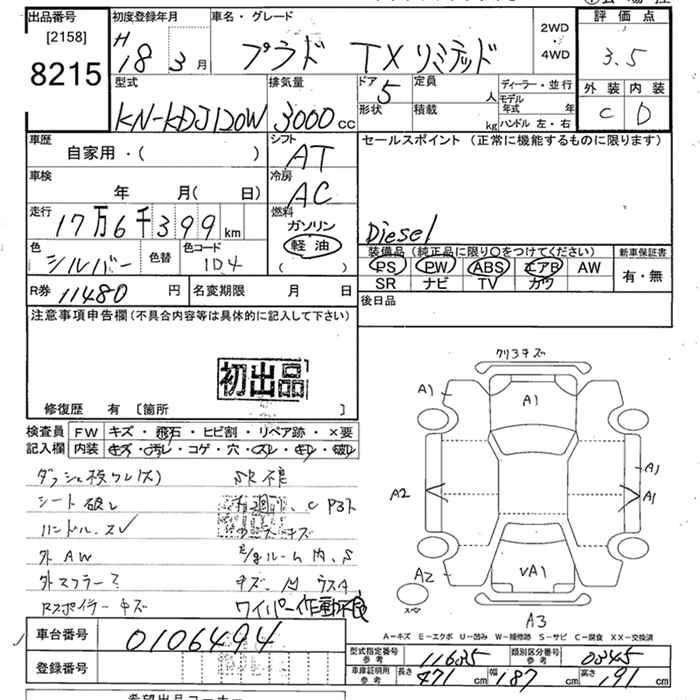 出品番号 初度登録年月 車名・グレード 2WD・4WD 評価点
[2158]
8215
H18 3月 プラド TX リミテッド 3.5
型式 排気量 ドア 定員 人 ディーラー・並行 外装 内装
KN-KDJ120W 3000cc 5 形状 積載 kg モデル年式 年 ハンドル 左・右 C D
車歴 シフト セールスポイント (正常に機能するものに限ります)
自家用・( ) AT
車検 冷房
年 月( 日) AC
走行 燃料
17万6千399km ガソリン
軽油 Diesel
色 色替 色コード ( ) 装備品(純正品に限り○をつけてください) 新車保証書
シルバー 104 PS PW ABS エアB AW 有・無
SR ナビ TV カワ
R券 11480円 名変期限 月 日 後日品
注意事項申告欄(不具合内容等は具体的に記入して下さい)
初出品
修復歴 有 〔箇所 〕
検査員記入欄 FW キズ・飛石・ヒビ割・リペア跡・×要
内装 キズ・ヨゴレ・コゲ・穴・スレ・キレ・破レ
SR不良
シート破レ
ハンドルスレ
外AW
ワイパー作動不良
A1 A1 A2 A1 A1 A2 VA1 A3
A-キズ E-エクボ U-凹み W-補修跡 S-サビ C-腐食 XX-交換済
車台番号 0106494
登録番号
型式指定番号 参考 11685 類別区分番号 参考 0045
車庫証明用 参考 長さ 471cm 幅 187cm 高さ 191cm
希望出品コーナー